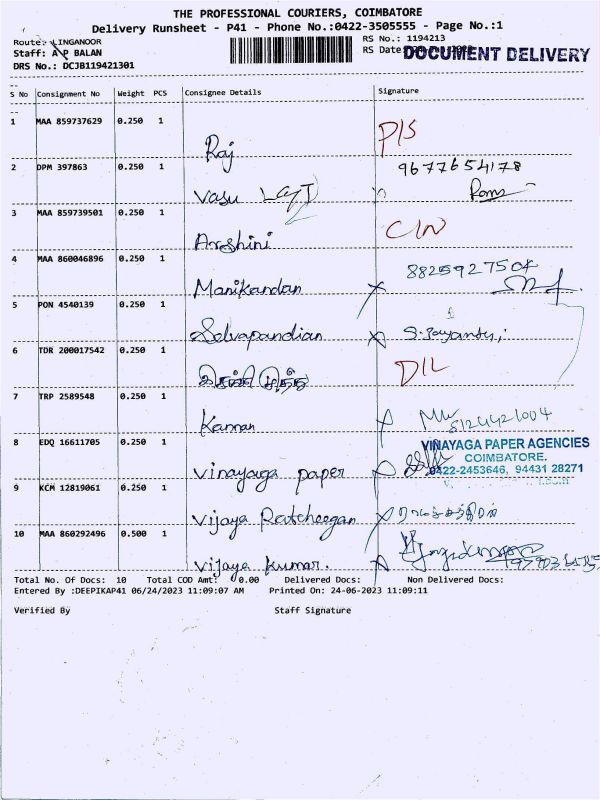 THE PROFESSIONAL COURIERS, COIMBATORE
Delivery Runsheet - P41 - Phone No.:0422-3505555 - Page No.:1
Route: LINGANOOR
RS No.: 1194213
Staff: A P BALAN
RS Date:
DOCUMENT DELIVERY
DRS No.: DCJB119421301
S No Consignment No Weight PCS Consignee Details Signature
1 MAA 859737629 0.250 1 Raj P/S
2 DPM 397863 0.250 1 Vasu 9677654178
3 MAA 859739501 0.250 1 Arshini C/N
4 MAA 860046896 0.250 1 Manikandan 8825927504
5 PON 4540139 0.250 1 Selvapandian S. Jayanthi
6 TDR 200017542 0.250 1 D/L
7 TRP 2589548 0.250 1 Kannan 8124421004
8 EDQ 16611705 0.250 1 Vinayaga paper
VINAYAGA PAPER AGENCIES
COIMBATORE.
0422-2453646, 94431 28271
9 KCM 12819061 0.250 1 Vijaya
10 MAA 860292496 0.500 1 Vijaya kumar.
Total No. Of Docs: 10 Total COD Amt: 0.00 Delivered Docs: Non Delivered Docs:
Entered By :DEEPIKAP41 06/24/2023 11:09:07 AM Printed On: 24-06-2023 11:09:11
Verified By Staff Signature